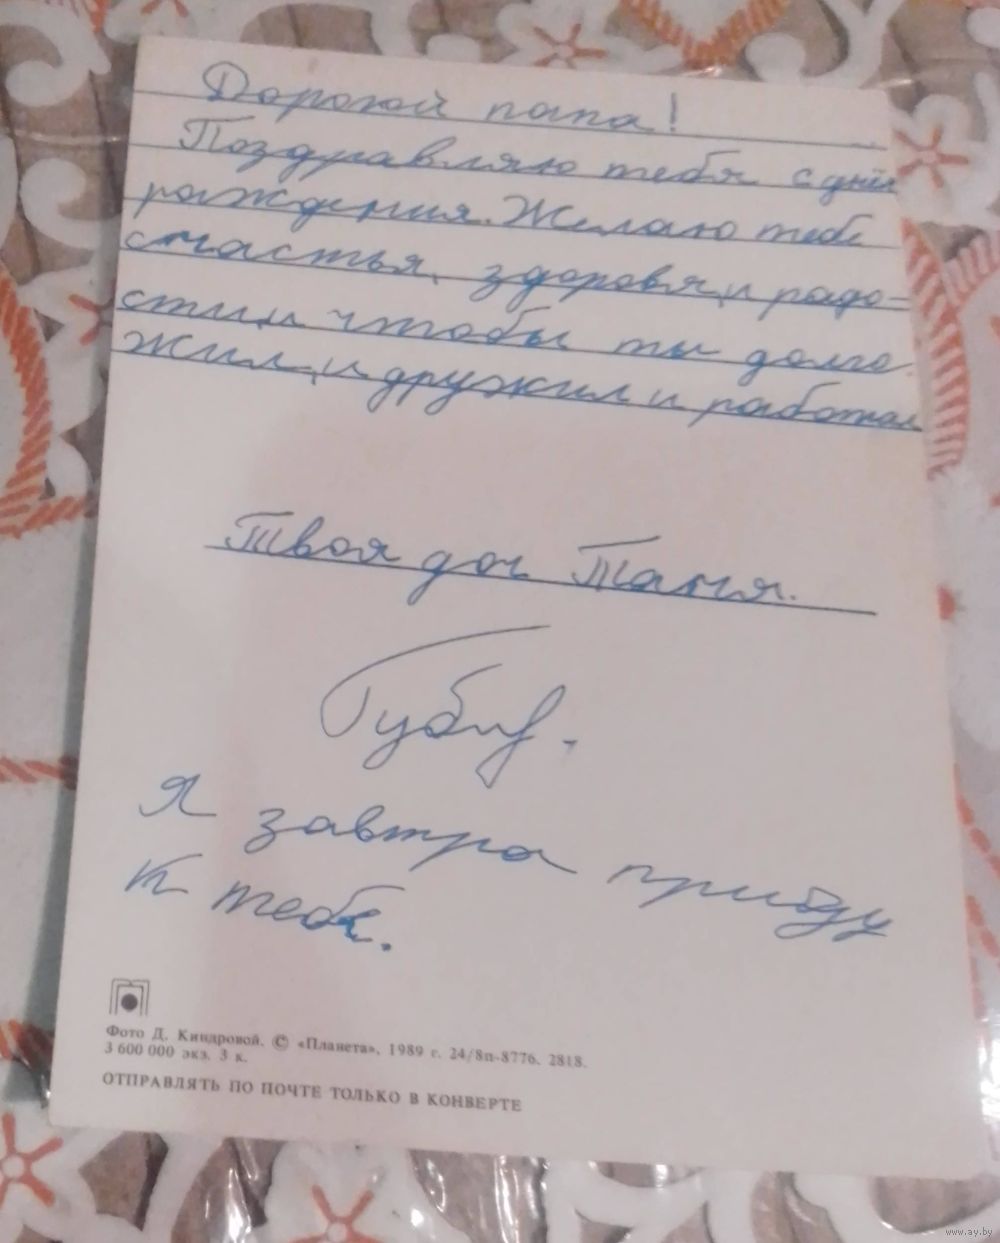 Дорогой папа!
Поздравляю тебя с днём
рождения. Желаю тебе
счастья, здоровя, и радо-
сти, и чтобы ты долго
жил, и дружил и работал
Твоя доч Таня.
Я завтра прийду
к тебе.
Фото Д. Киндровой. © «Планета», 1989 г. 24/8п-8776. 2818.
3 600 000 экз. 3 к.
ОТПРАВЛЯТЬ ПО ПОЧТЕ ТОЛЬКО В КОНВЕРТЕ
www.ay.by